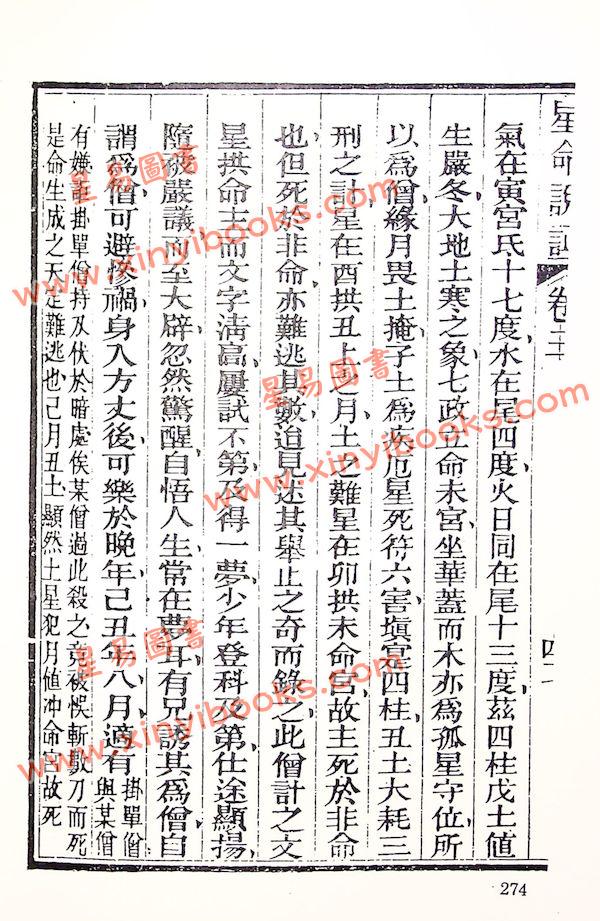 星命說證 卷二十
四二
氣在寅宮氐十七度水在尾四度火日同在尾十三度茲四柱戊土值
生嚴冬大地土寒之象七政立命未宮坐華蓋而木亦為孤星守位所
以為僧緣月畏土掩子土為疾厄星死符六害填寔四柱丑土大耗三
刑之計星在酉拱丑上之月土之難星在卯拱未命宮故主死於非命
也但死於非命亦難逃其數迨見述其舉止之奇而錄之此僧計之文
星拱命主而文字清高屢試不第及得一夢少年登科及第仕途顯揚
隋被嚴議而至大辟忽然驚醒自悟人生常在夢耳有兄誘其為僧自
謂為僧可避慘禍身入方丈後可樂於晚年己丑年八月適有掛單僧與某僧
有嫌詎掛單僧持刄伏於暗處俟某僧過此殺之竟被悞斬數刀而死
是命生成之天定難逃也己月丑土顯然土星犯月值沖命宮故死
274
星易圖書
www.xinyibooks.com
星易圖書
www.xinyibooks.com
星易圖書
www.xinyibooks.com